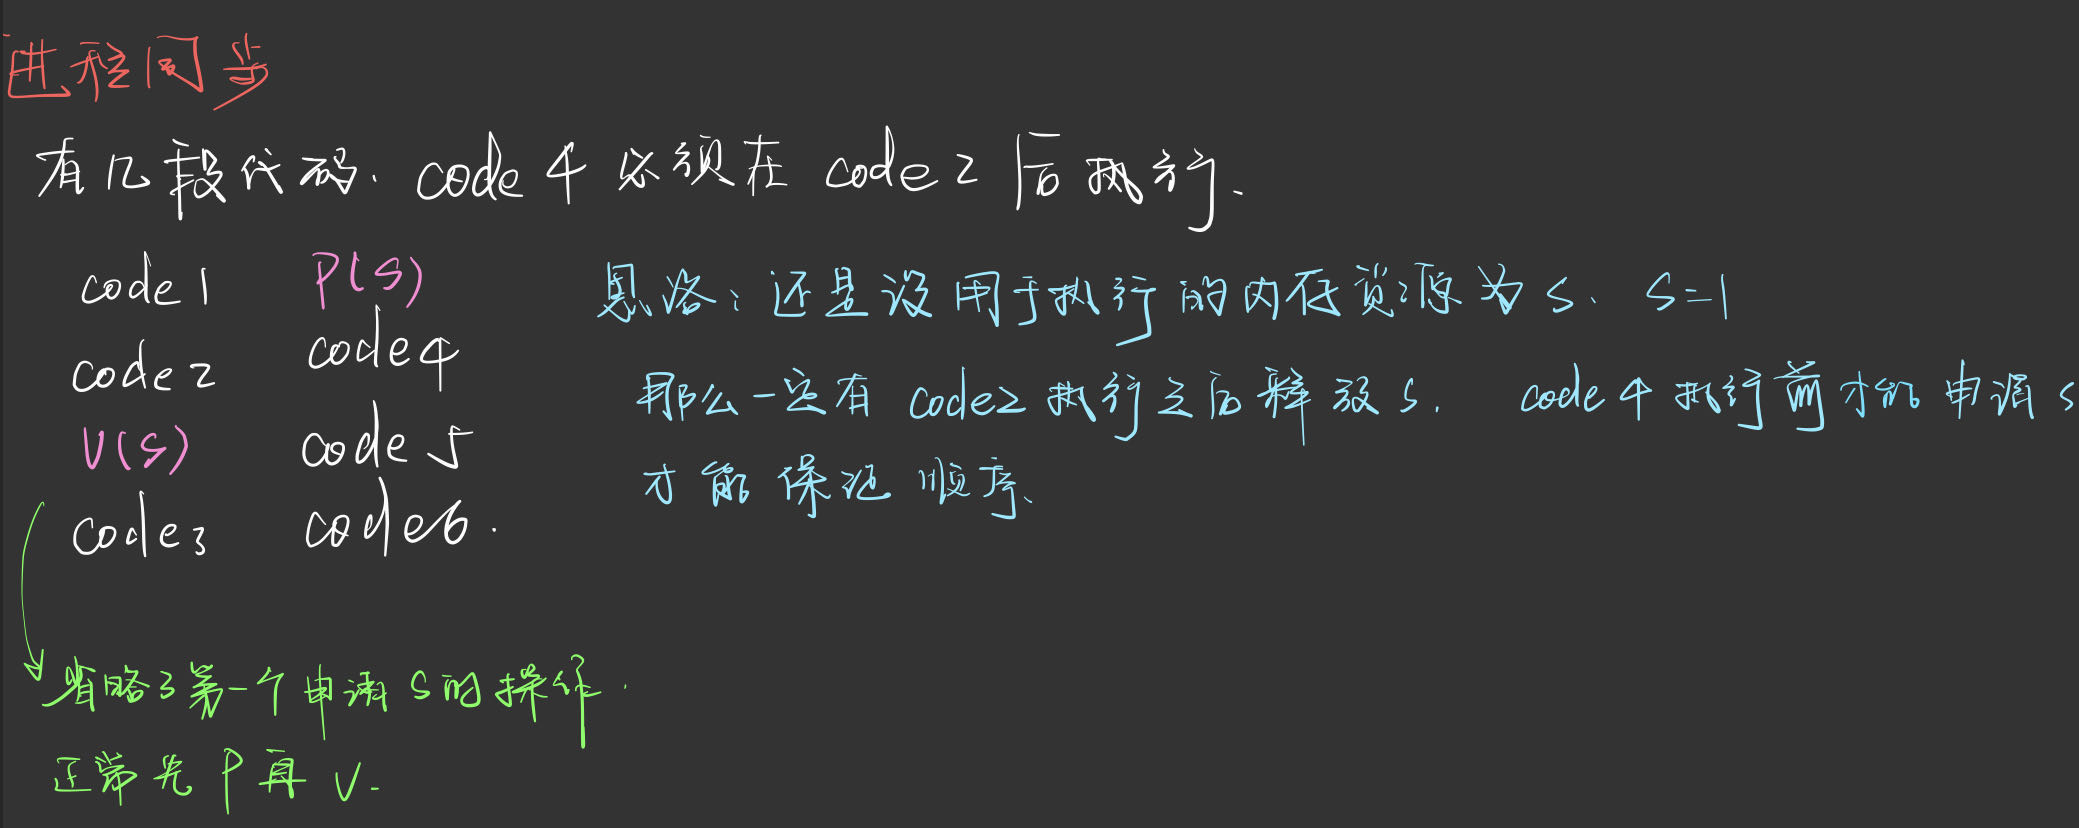 进程同步
有几段代码. code 4 必须在 code 2 后执行.
code 1 P(S)
code 2 code 4
V(S) code 5
code 3 code 6.
思路：还是设用于执行的内存资源为 S. S=1
那么一定有 code 2 执行之后释放 S. code 4 执行前才能申请 S
才能保证顺序.
省略了第一个申请 S 的操作.
正常先 P 再 V.